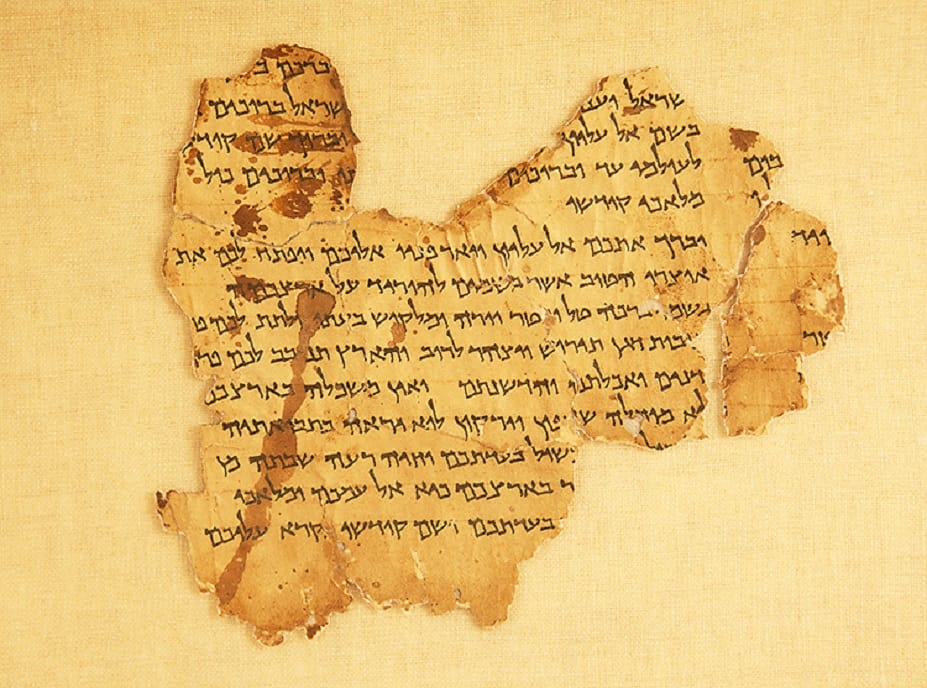 ברכם ב
שראל וענ שראל ברוכים
בשם אל עליון וברוך שם קודש
לעולמי עד וברוכים וברוכים כול
מלאכי קודשו
יברך אתכם אל עליון ויאר פניו אליכם ויפתח לכם את
אוצרו הטוב אשר בשמים להוריד על ארצכם
גשמי ברכה טל ומטר יורה ומלקוש בעתו ולתת לכם
תנובות דגן תירוש ויצהר לרוב והארץ תנובב לכם
דנים ואכלתם והדשנתם ואין משכלה בארצכם
לוא מוחלה שדפון וירקון לוא יראה בתבואתיה
שול בעדתכם וחיה רעה שבתה מן
ר בארצכם כיא אל עמכם ומלאכי
בעדתכם ושם קודשו נקרא עליכם